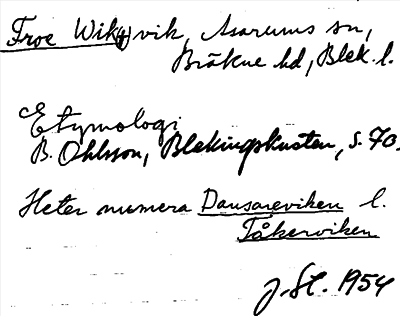 Froe Wik(4) vik, Asarums sn,
Bräkne hd, Blek. l.
Etymologi
B. Ohlsson, Blekingskusten, s. 70.
Heter numera Dansareviken l.
Tåkerviken
J. Sl. 1954